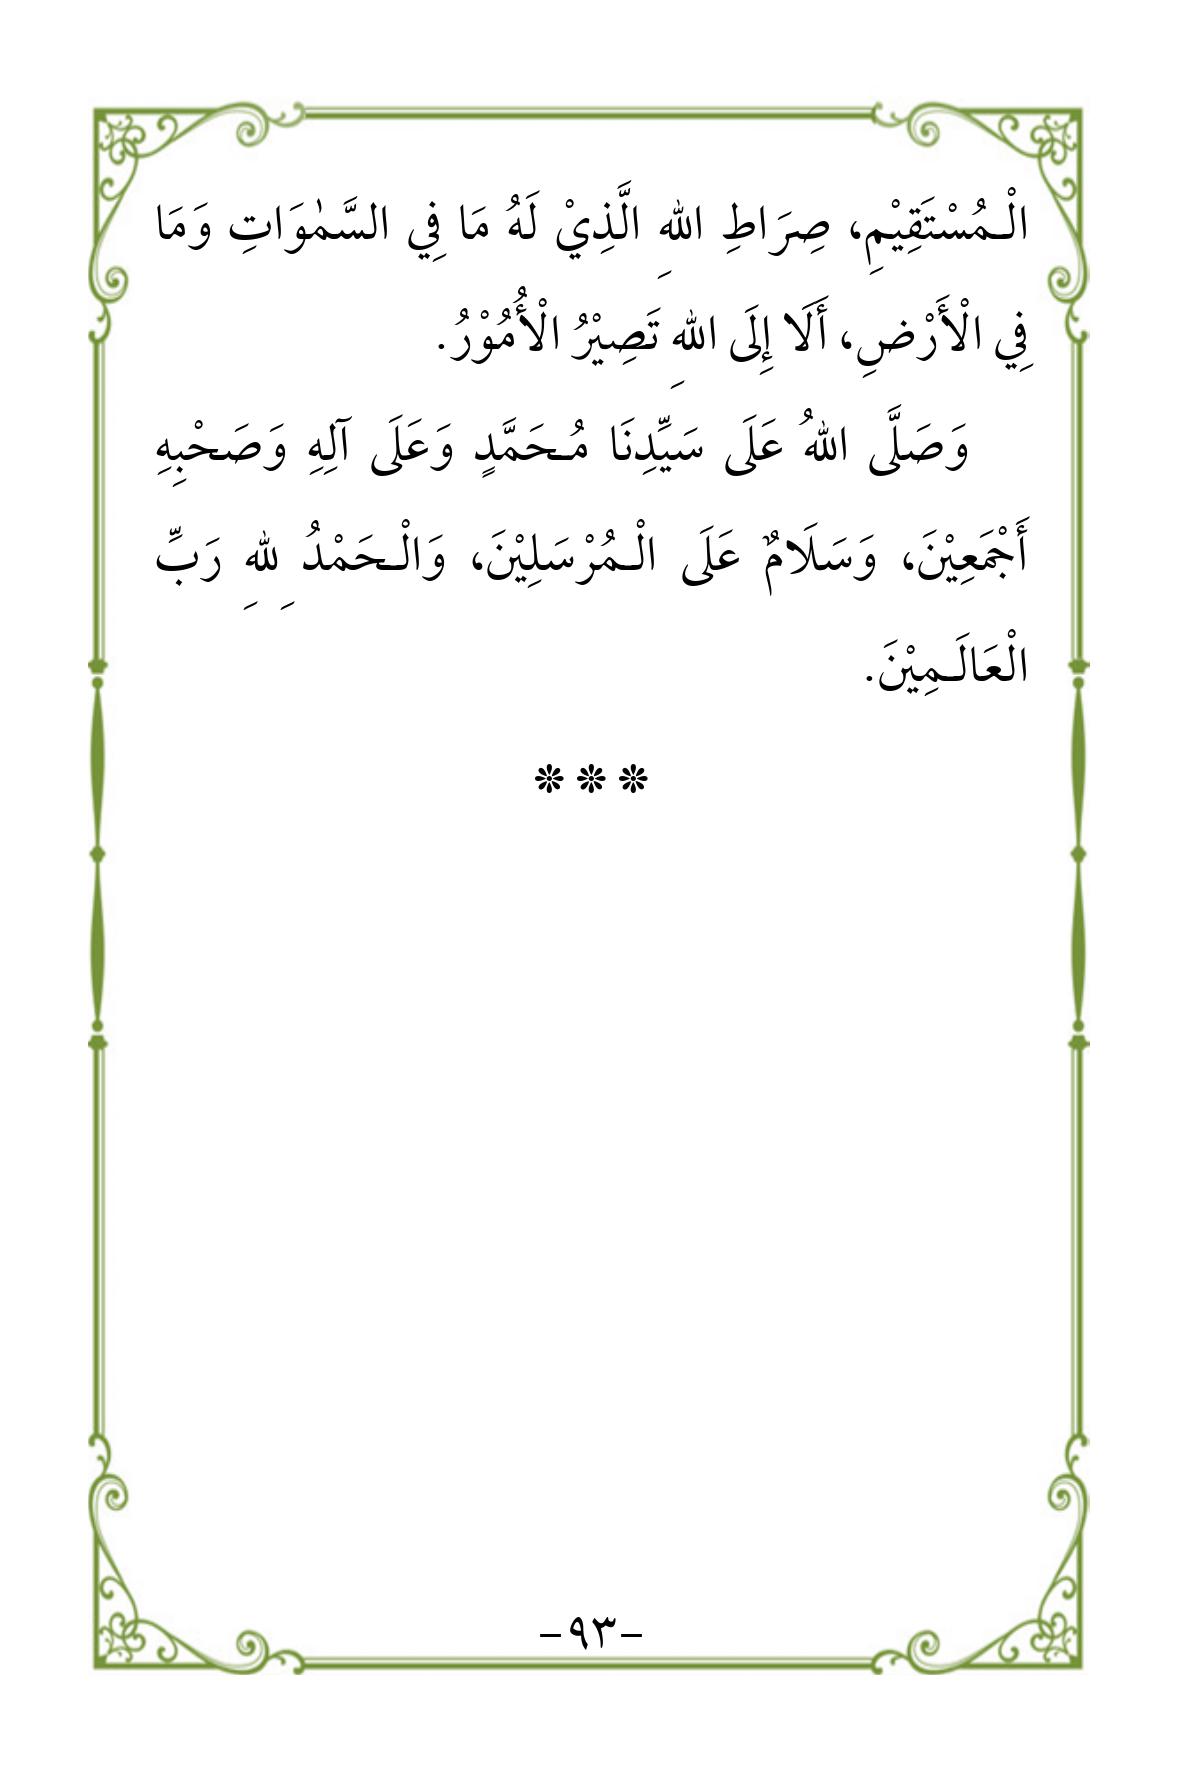 الْـمُسْتَقِيْمِ، صِرَاطِ اللهِ الَّذِيْ لَهُ مَا فِي السَّمٰوَاتِ وَمَا
فِي الْأَرْضِ، أَلَا إِلَى اللهِ تَصِيْرُ الْأُمُوْرُ.
وَصَلَّى اللهُ عَلَى سَيِّدِنَا مُـحَمَّدٍ وَعَلَى آلِهِ وَصَحْبِهِ
أَجْمَعِيْنَ، وَسَلَامٌ عَلَى الْـمُرْسَلِيْنَ، وَالْـحَمْدُ لِلهِ رَبِّ
الْعَالَـمِيْنَ.
❊ ❊ ❊
-٩٣-